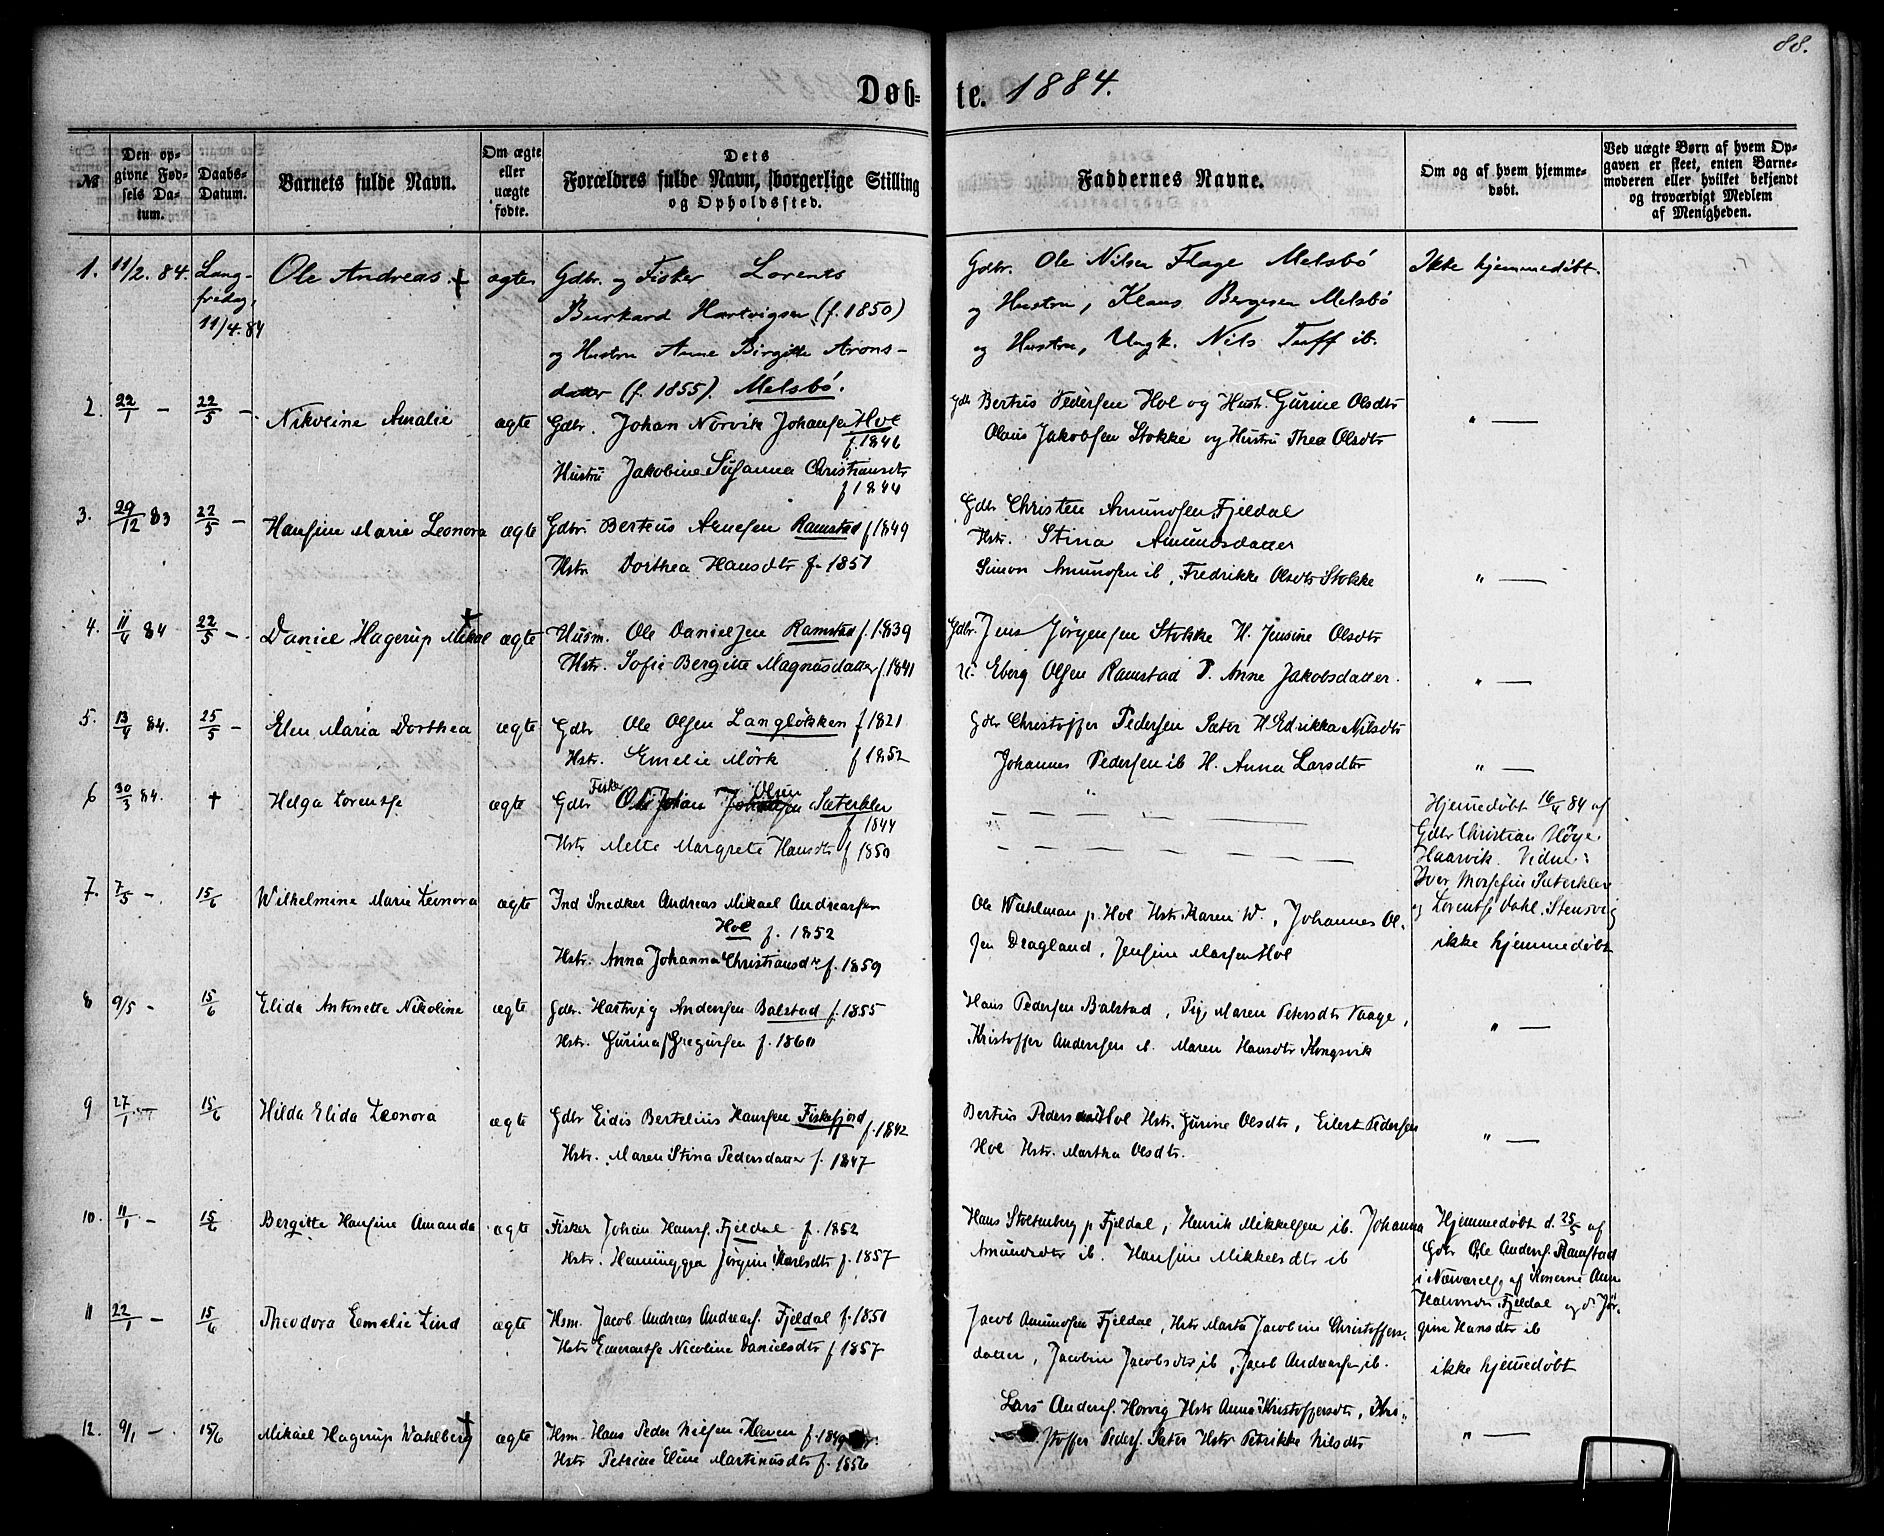 88.
Døb=te. 1884.
№
Den op-
givne Fød-
sels Da-
tum.
Daabs-
Datum.
Barnets fulde Navn.
Om ægte
eller
uægte
fødte.
Dets
Forældres fulde Navn, borgerlige Stilling
og Opholdssted.
Faddernes Navne.
Om og af hvem hjemme-
døbt.
Ved uægte Børn af hvem Op-
gaven er skeet, enten Barne-
moderen eller hvilket bekjendt
og troværdigt Medlem
af Menigheden.
1. 11/2. 84. Lang- Ole Andreas † ægte Gdbr. og Fisker Lorents Gdbr. Ole Nilsen Flage Melsbø Ikke hjemmedøbt.
fredag, Burkard Hartvigsen (f. 1850) og Hustru, Klaus Bergesen Melsbø
11/4. 84 og Hustru Anne Birgitte Arons- og Hustru, Ungk. Nils Tuff ib.
datter (f. 1855). Melsbø.
2. 22/1 — 22/5 — Nikoline Amalie ægte Gdbr. Johan Norvik Johansen Hol Gdb Bertus Pedersen Hol og Hust. Gurine Olsdtr " —
f. 1846 Olaus Jakobsen Stokke og Hustru Thea Olsdtr
Hustru Jakobine Susanna Christiansdtr
f 1844
3. 29/12 83 22/5 — Hansine Marie Leonora ægte Gdbr Bertéus Arnesen Ramstad f 1849 Gdbr Christen Amundsen Fjeldal
Hstr Dorthea Hansdtr f. 1851 Hstr. Stina Amundsdatter
Simon Amundsen ib, Fredrikke Olsdtr Stokke " —
4. 11/4 84 22/5 — Daniel Hagerup Mikal † ægte Husm. Ole Danielsen Ramstad f. 1839 Gdbr. Jens Jørgensen Stokke H. Jensine Olsdtr
Hstr. Sofie Bergitte Magnusdatter f. 1841 U. Eberg Olsen Ramstad P. Anne Jakobsdatter. " —
5. 13/4 84. 25/5 — Elen Maria Dorthea ægte Gdbr Ole Olsen Langløkken f 1821 Gdbr Christoffer Pedersen Sæter H Edrikka Nilsdtr
Hstr. Emelie Mørk f 1852 Johannes Pedersen ib H. Anna Larsdtr " —
6 30/3 84. † Helga Lorentse ægte Gdbr Fisker Ole Johan Olsen Sæterkler " — — — Hjemmedøbt 16/4 84 af
f 1844 Gdbr Christian Høye
Hstr Mette Margrete Hansdtr f 1850 — — — — Haarvik. Vidne:
Iver Sæterkler
og Lorentse Dahl, Stensvig
7. 7/5 — 15/6 Wilhelmine Marie Leonora ægte Ind Snedker Andreas Mikael Andreassen Ole Wahlman p. Hol Hstr. Karen W., Johannes Ol- ikke hjemmedøbt
Hol f. 1852 sen Dragland, Jensine Hol
Hstr. Anna Johanna Christiansdtr f. 1859
8 9/5 — 15/6 Elida Antonette Nikoline ægte Gdbr. Hartvig Andersen Balstad f. 1855 Hans Pedersen Balstad, Pig. Maren Petersdtr Vaage, " —
Hstr. Gurina Gregusen f. 1860 Kristoffer Andersen ib. Maren Hansdtr Kongsvik
9 27/1 — 15/6 Hilda Elida Leonora ægte Gdbr Eidis Bertelius Hansen Fiskefjord Bertus Pedersen Hol Hstr. Gurine Olsdtr, Eilert Pedersen " —
f. 1842 Hol Hstr. Martha Olsdtr.
Hstr. Maren Stina Pedersdatter f. 1847
10. 11/1 — 15/6 Bergitte Hansine Amanda ægte Fisker Johan Hans. Fjeldal f. 1852 Hans Stoltenberg p Fjeldal, Henrik Mikkelsen ib. Johanna Hjemmedøbt d. 25/5 af
Hstr. Henninggea Jørgine Karlsdtr f. 1857 Amundsdtr ib. Hansine Mikkelsdtr ib Gdbr Ole Anders. Ramstad
i Nærværelse af Konerne Ane
Fjeldal og Jør-
gine Hansdtr ib
11 22/1 — 15/6 Theodora Emelie Lind ægte Hsm. Jacob Andreas Andreass. Fjeldal f. 1850 Jacob Amundsen Fjeldal, Hstr Marta Jacobine Christoffers- ikke hjemmedøbt
Hstr Emerentse Nicoline Danielsdtr f 1857 datter, Jacobine Jacobsdtr ib, Jacob Andreassen ib.
12. 9/1 — 15/6 Mikael Hagerup Wahlberg † ægte Hsm. Hans Peder Nilsen Kleven f. 1849 Lars Anders. Horvig Hstr Anna Kristoffersdtr, Kri- " —
Hstr Petrine Eline Martinusdtr f. 1856 stoffer Peders. Sæter Hstr Petrikke Nilsdtr